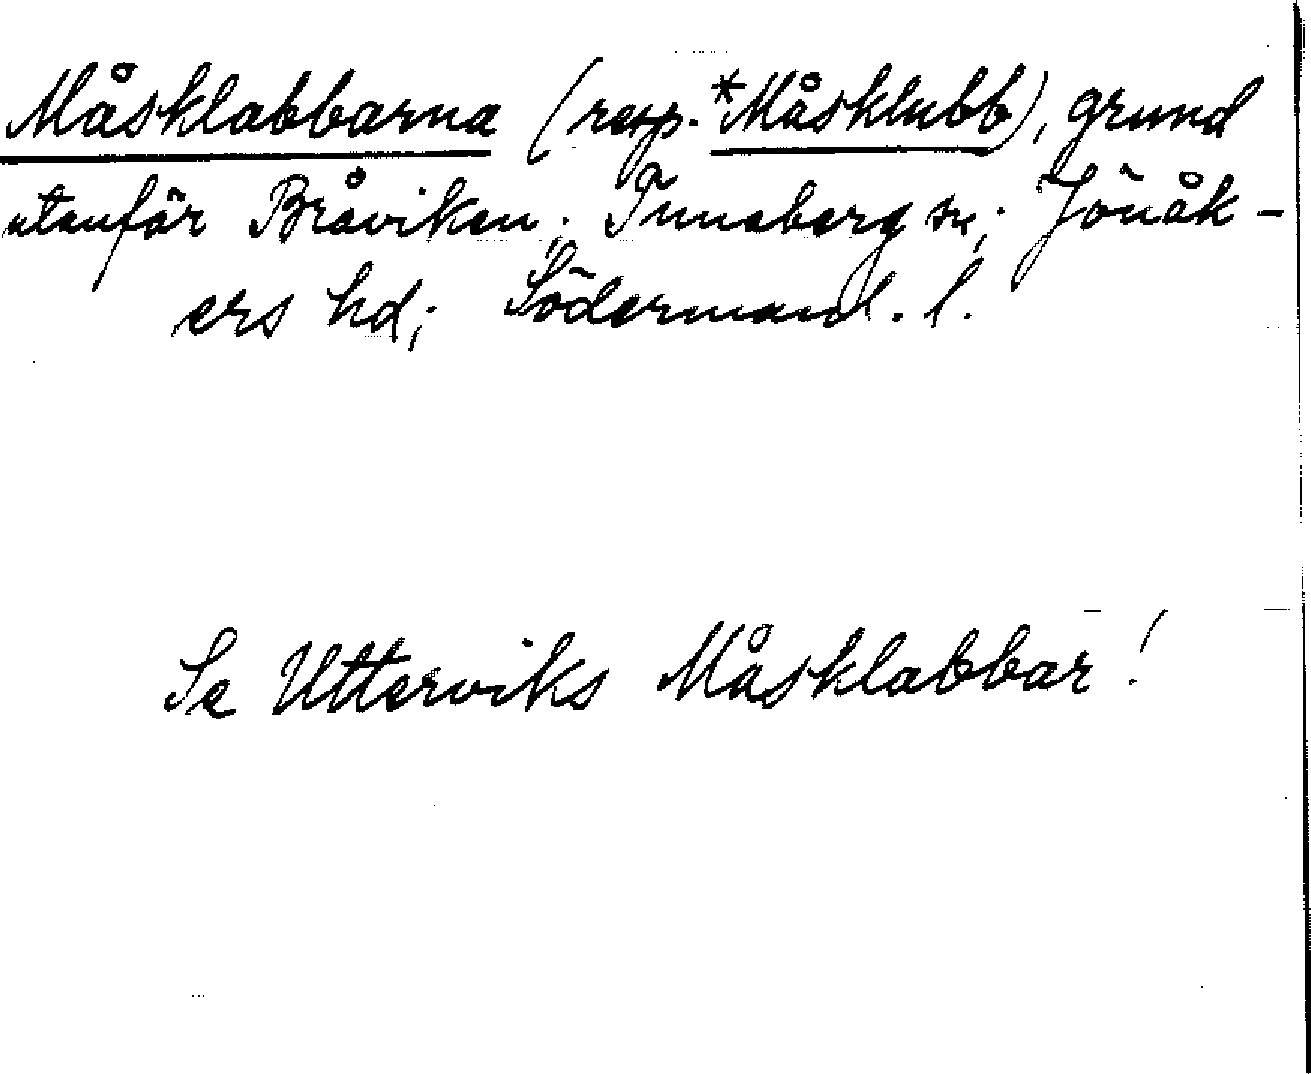 Måsklabbarna (resp. *Måsklubb), grund
utanför Bråviken; Tunaberg sn; Jönåk-
ers hd; Södermanl. l.
Se Utterviks Måsklabbar!